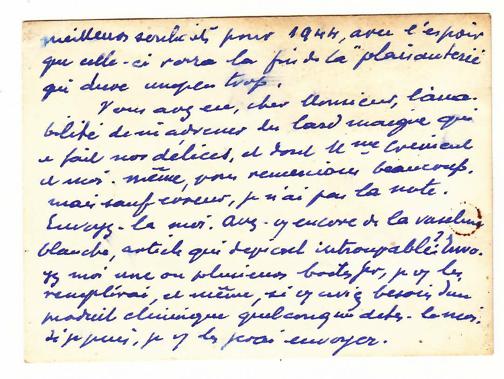 meilleurs souhaits pour 1944, avec l'espoir
que celle-ci verra la fin de la "plaisanterie
qui dure un peu trop.
Vous avez eu, cher Monsieur, l'ama-
bilité de m'adresser du lard maigre qui
a fait nos délices, et dont Mme
et moi-même, vous remercions beaucoup.
mais sauf erreur, je n'ai pas la note.
Envoyez-la moi. Avez-vs encore de la vaseline
blanche, article qui devient introuvable? Envo-
yez moi une ou plusieurs boites, je vs les
remplirai, et même, si vs aviez besoin d'un
produit chimique quelconque dites-le moi.
Si je puis, je vs les ferai envoyer.